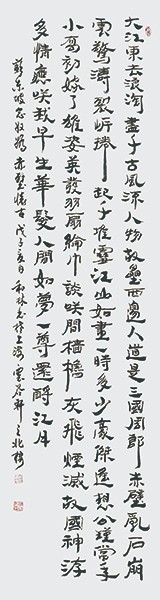 大江東去浪淘盡千古風流人物故壘西邊人道是三國周郎赤壁亂石崩
雲驚濤裂岍捲起千堆雪江山如畫一時多少豪傑遥想公瑾當年
小喬初嫁了雄姿英發羽扇綸巾談咲間檣櫓灰飛煙滅故國神游
多情應咲我早生華髮人間如夢一尊還酹江月
蘇東坡念奴嬌赤壁懷古戊子亥日和林書於上海雲谷軒之北樓